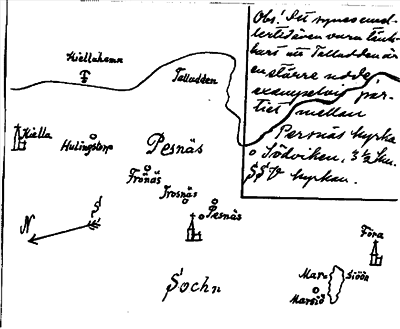 Obs! Det synes emel-
lertid även vara tänk-
bart att Talludden är
en större udde,
exempelvis par-
tiet mellan
Persnäs kyrka
o Södviken, 3½ km.
SSV kyrkan.
Hiellahamn
Talludden
Hiella
Hulingstorp
Pesnäs
Fronäs
Trosnäs
Pesnäs
N
S
Föra
Mar-
siöön
Marsiö
Sochn